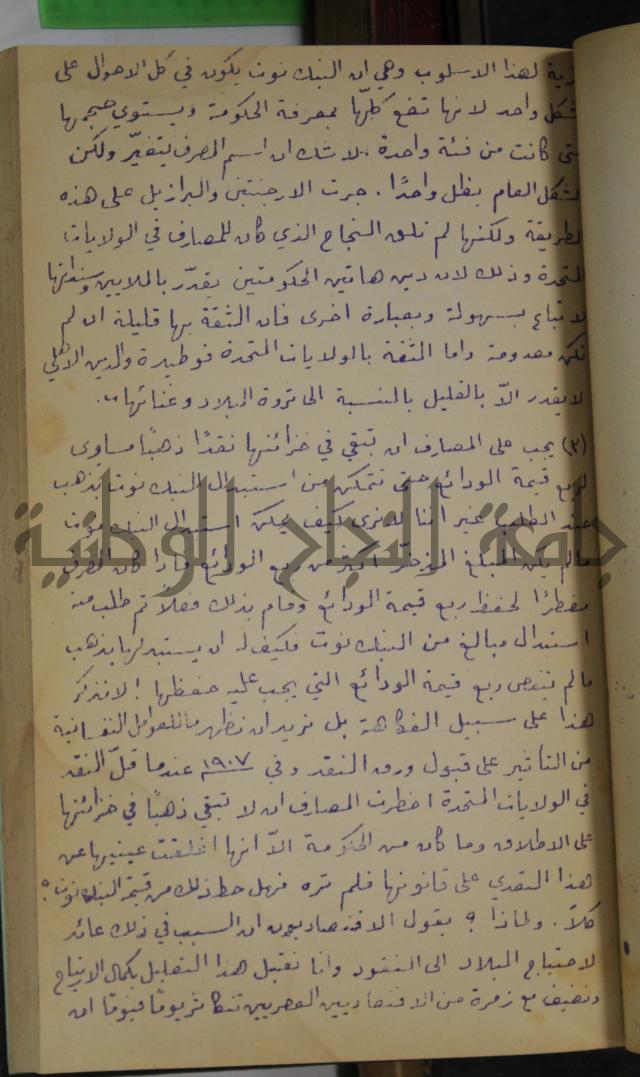 مزية لهذا الاسلوب وهي ان البنك نوت يكون في كل الاحوال على
شكل واحد لانها تضع كلّها بمعرفة الحكومة ويستوي حجمها
متى كانت من فئة واحدة. لا شك ان اسم المصرف يتغيّر ولكن
الشكل العام يظل واحدًا. جرت الارجنتين والبرازيل على هذه
الطريقة ولكنها لم تلق النجاح الذي كان للمصارف في الولايات
المتحدة وذلك لان دين هاتين الحكومتين يقدّر بالملايين وسنداتها
لا تباع بسهولة وبعبارة اخرى فان الثقة بها قليلة ان لم
تكن معدومة واما الثقة بالولايات المتحدة فوطيدة والدين الاهلي
لا يقدر الاّ بالقليل بالنسبة الى ثروة البلاد وغنائها.
(٣) يجب على المصارف ان تبقي في خزائنها نقدًا ذهبًا مساوى
لربع قيمة الودائع حتى تتمكن من استبدال البنك نوت بذهب
عند الطلب غير اننا لا نرى كيف يمكن استبدال البنك نوت
مالم يكن المبلغ المدخر اكثر من ربع الودائع فاذا كان المصرف
مضطرًا لحفظ ربع قيمة الودائع وقام بذلك فعلاً ثم طلب منه
استبدال مبالغ من البنك نوت فكيف له ان يستبدلها بذهب
مالم ينقص ربع قيمة الودائع التي يجب عليه حفظها ! لا نذكر
هذا على سبيل الفكاهة بل نريد ان نظهر ما للعوامل النفسانية
من التأثير على قبول ورق النقد وفي ١٩٠٧ عندما قلّ النقد
في الولايات المتحدة اضطرت المصارف ان لا تبقي ذهبًا في خزائنها
على الاطلاق وما كان من الحكومة الاّ انها اغلقت عينيها عن
هذا التعدي على قانونها فلم تره فهل حط ذلك من قيمة البنك نوت ؟
كلاّ. ولماذا ؟ يقول الاقتصاديون ان السبب في ذلك عائد
لاحتياج البلاد الى النقود وانا نقبل هذا التعليل بكمال الارتياح
ونضيف مع زمرة من الاقتصاديين العصريين تتكاثر يومًا فيومًا ان
جامعة النجاح الوطنية